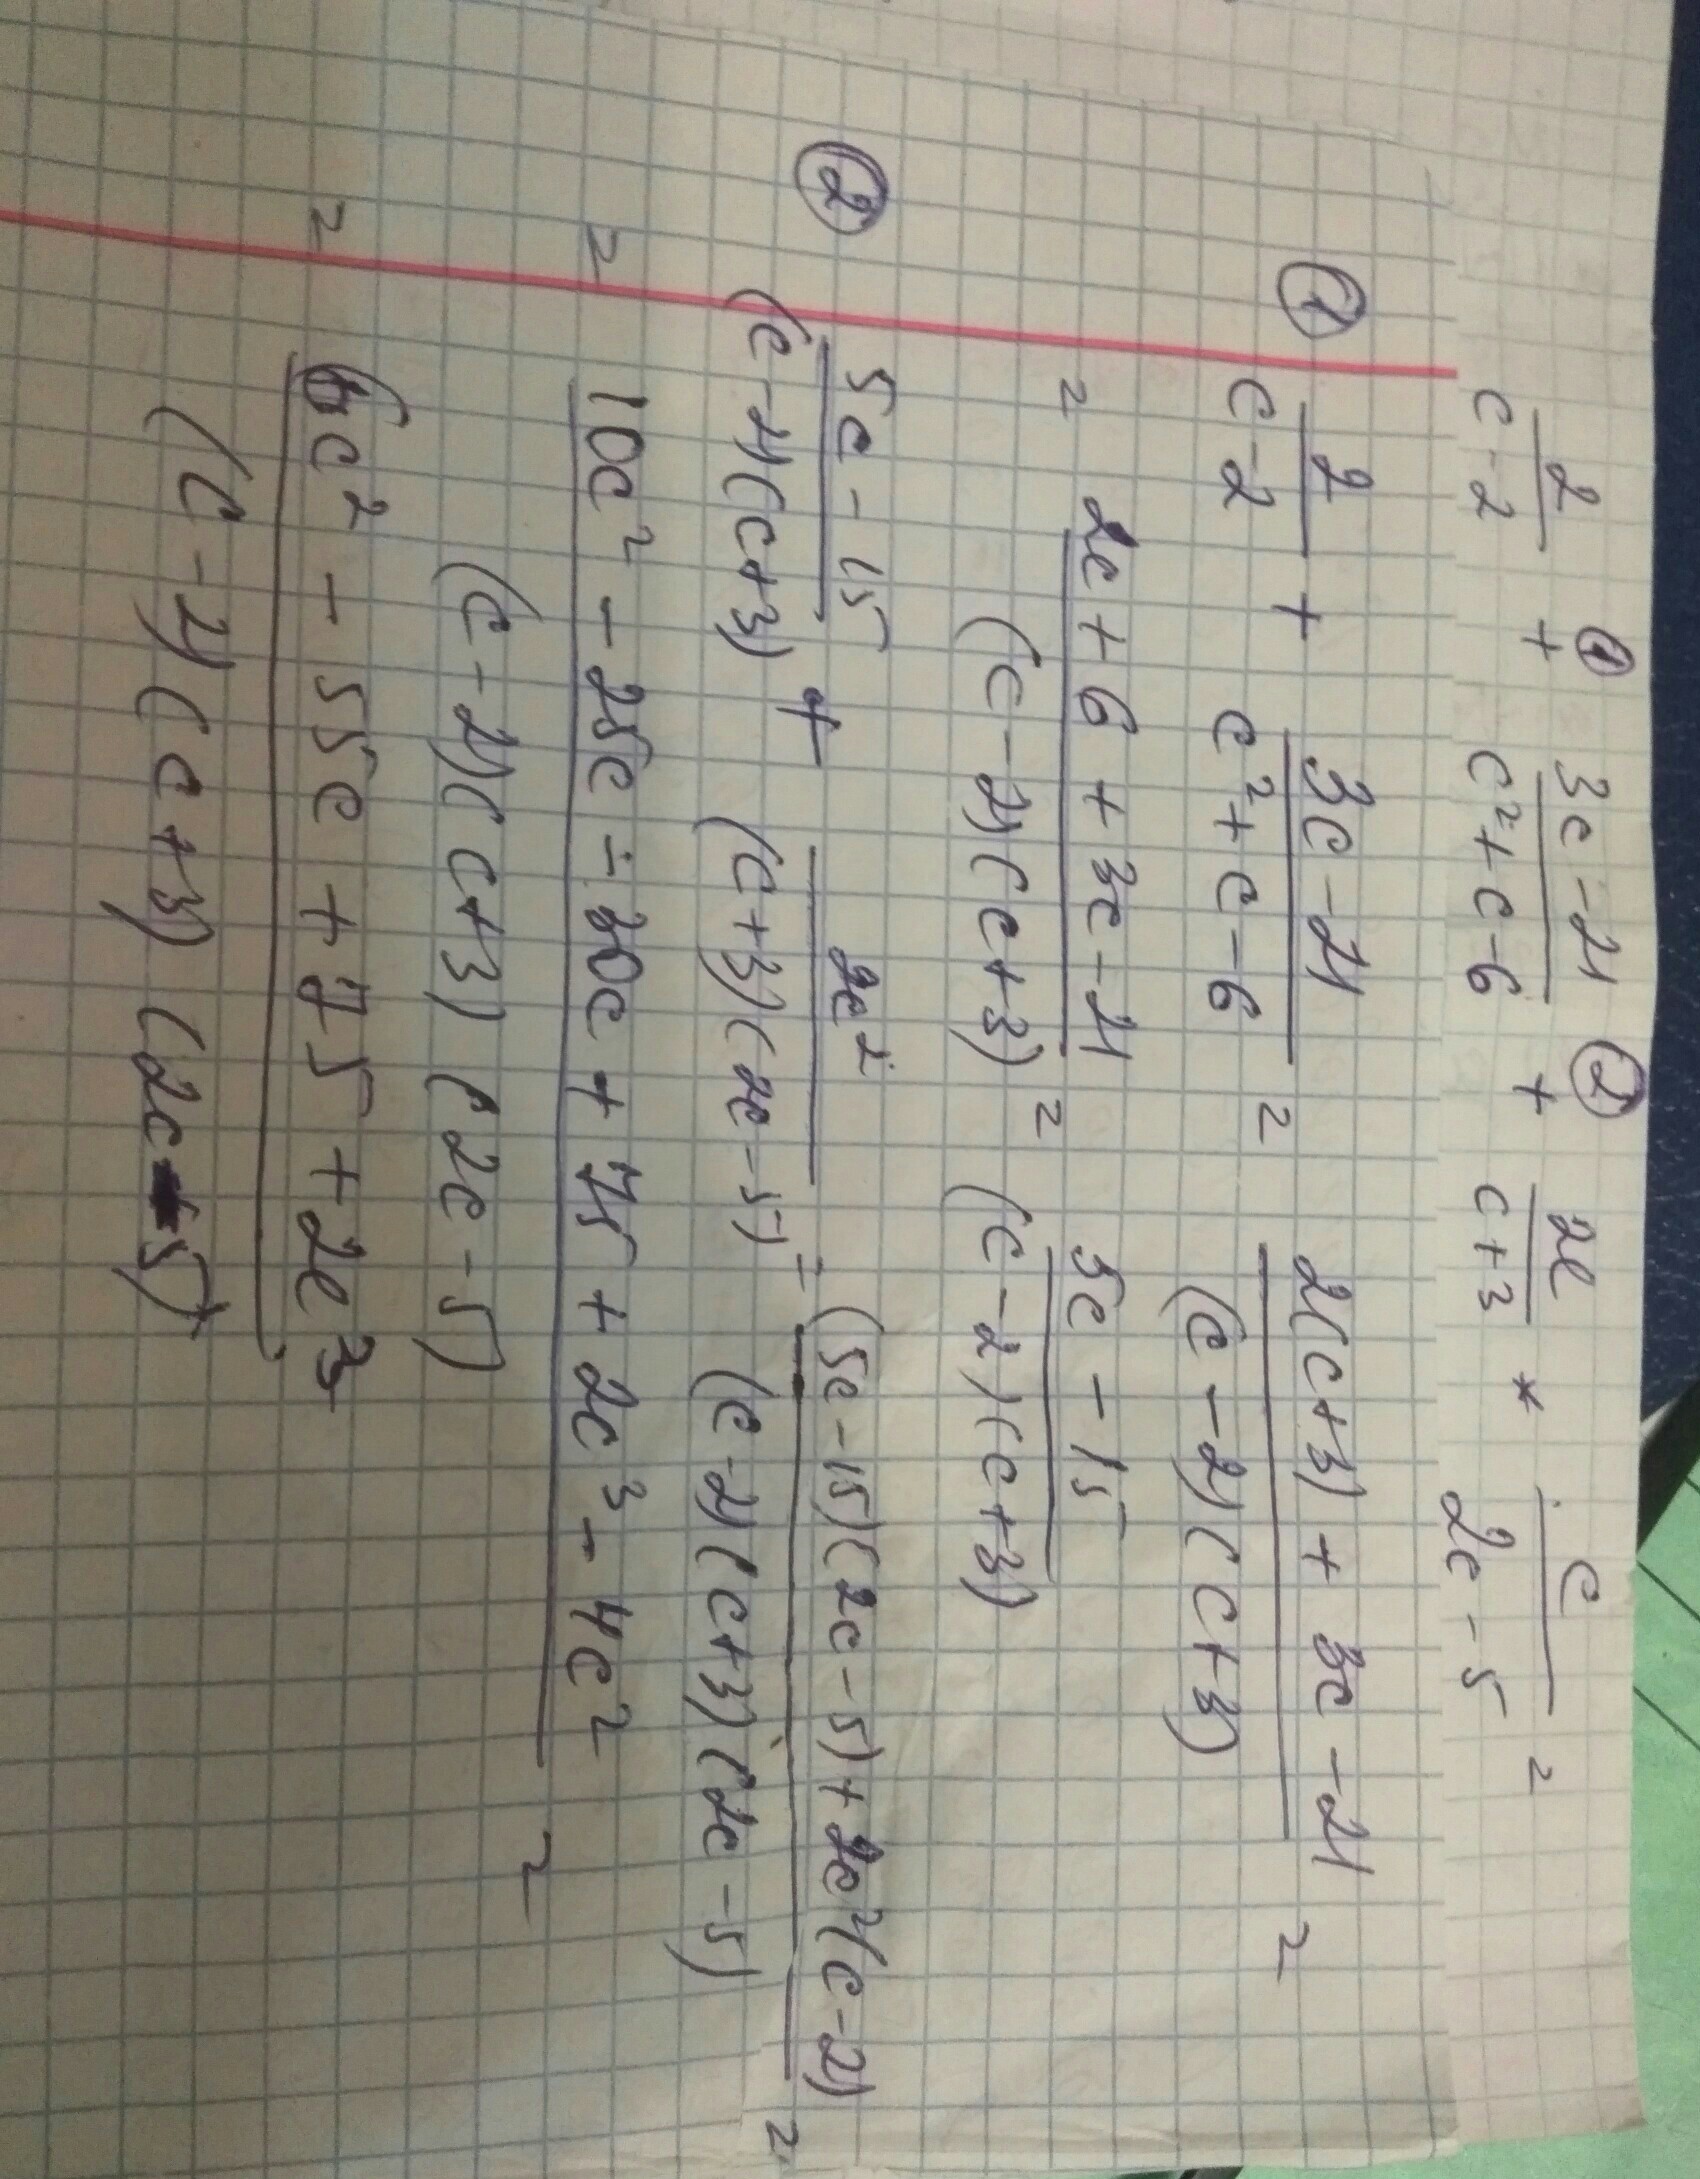 2/(c-2) + ① (3c-21)/(c²+c-6) + ② 2c/(c+3) * c/(2c-5) =
① 2/(c-2) + (3c-21)/(c²+c-6) = (2(c+3)+3c-21)/((c-2)(c+3)) =
= (2c+6+3c-21)/((c-2)(c+3)) = (5c-15)/((c-2)(c+3))
② (5c-15)/((c-2)(c+3)) + 2c²/((c+3)(2c-5)) = ((5c-15)(2c-5)+2c²(c-2))/((c-2)(c+3)(2c-5)) =
= (10c²-25c-30c+75+2c³-4c²)/((c-2)(c+3)(2c-5)) =
= (6c²-55c+75+2c³)/((c-2)(c+3)(2c-5))